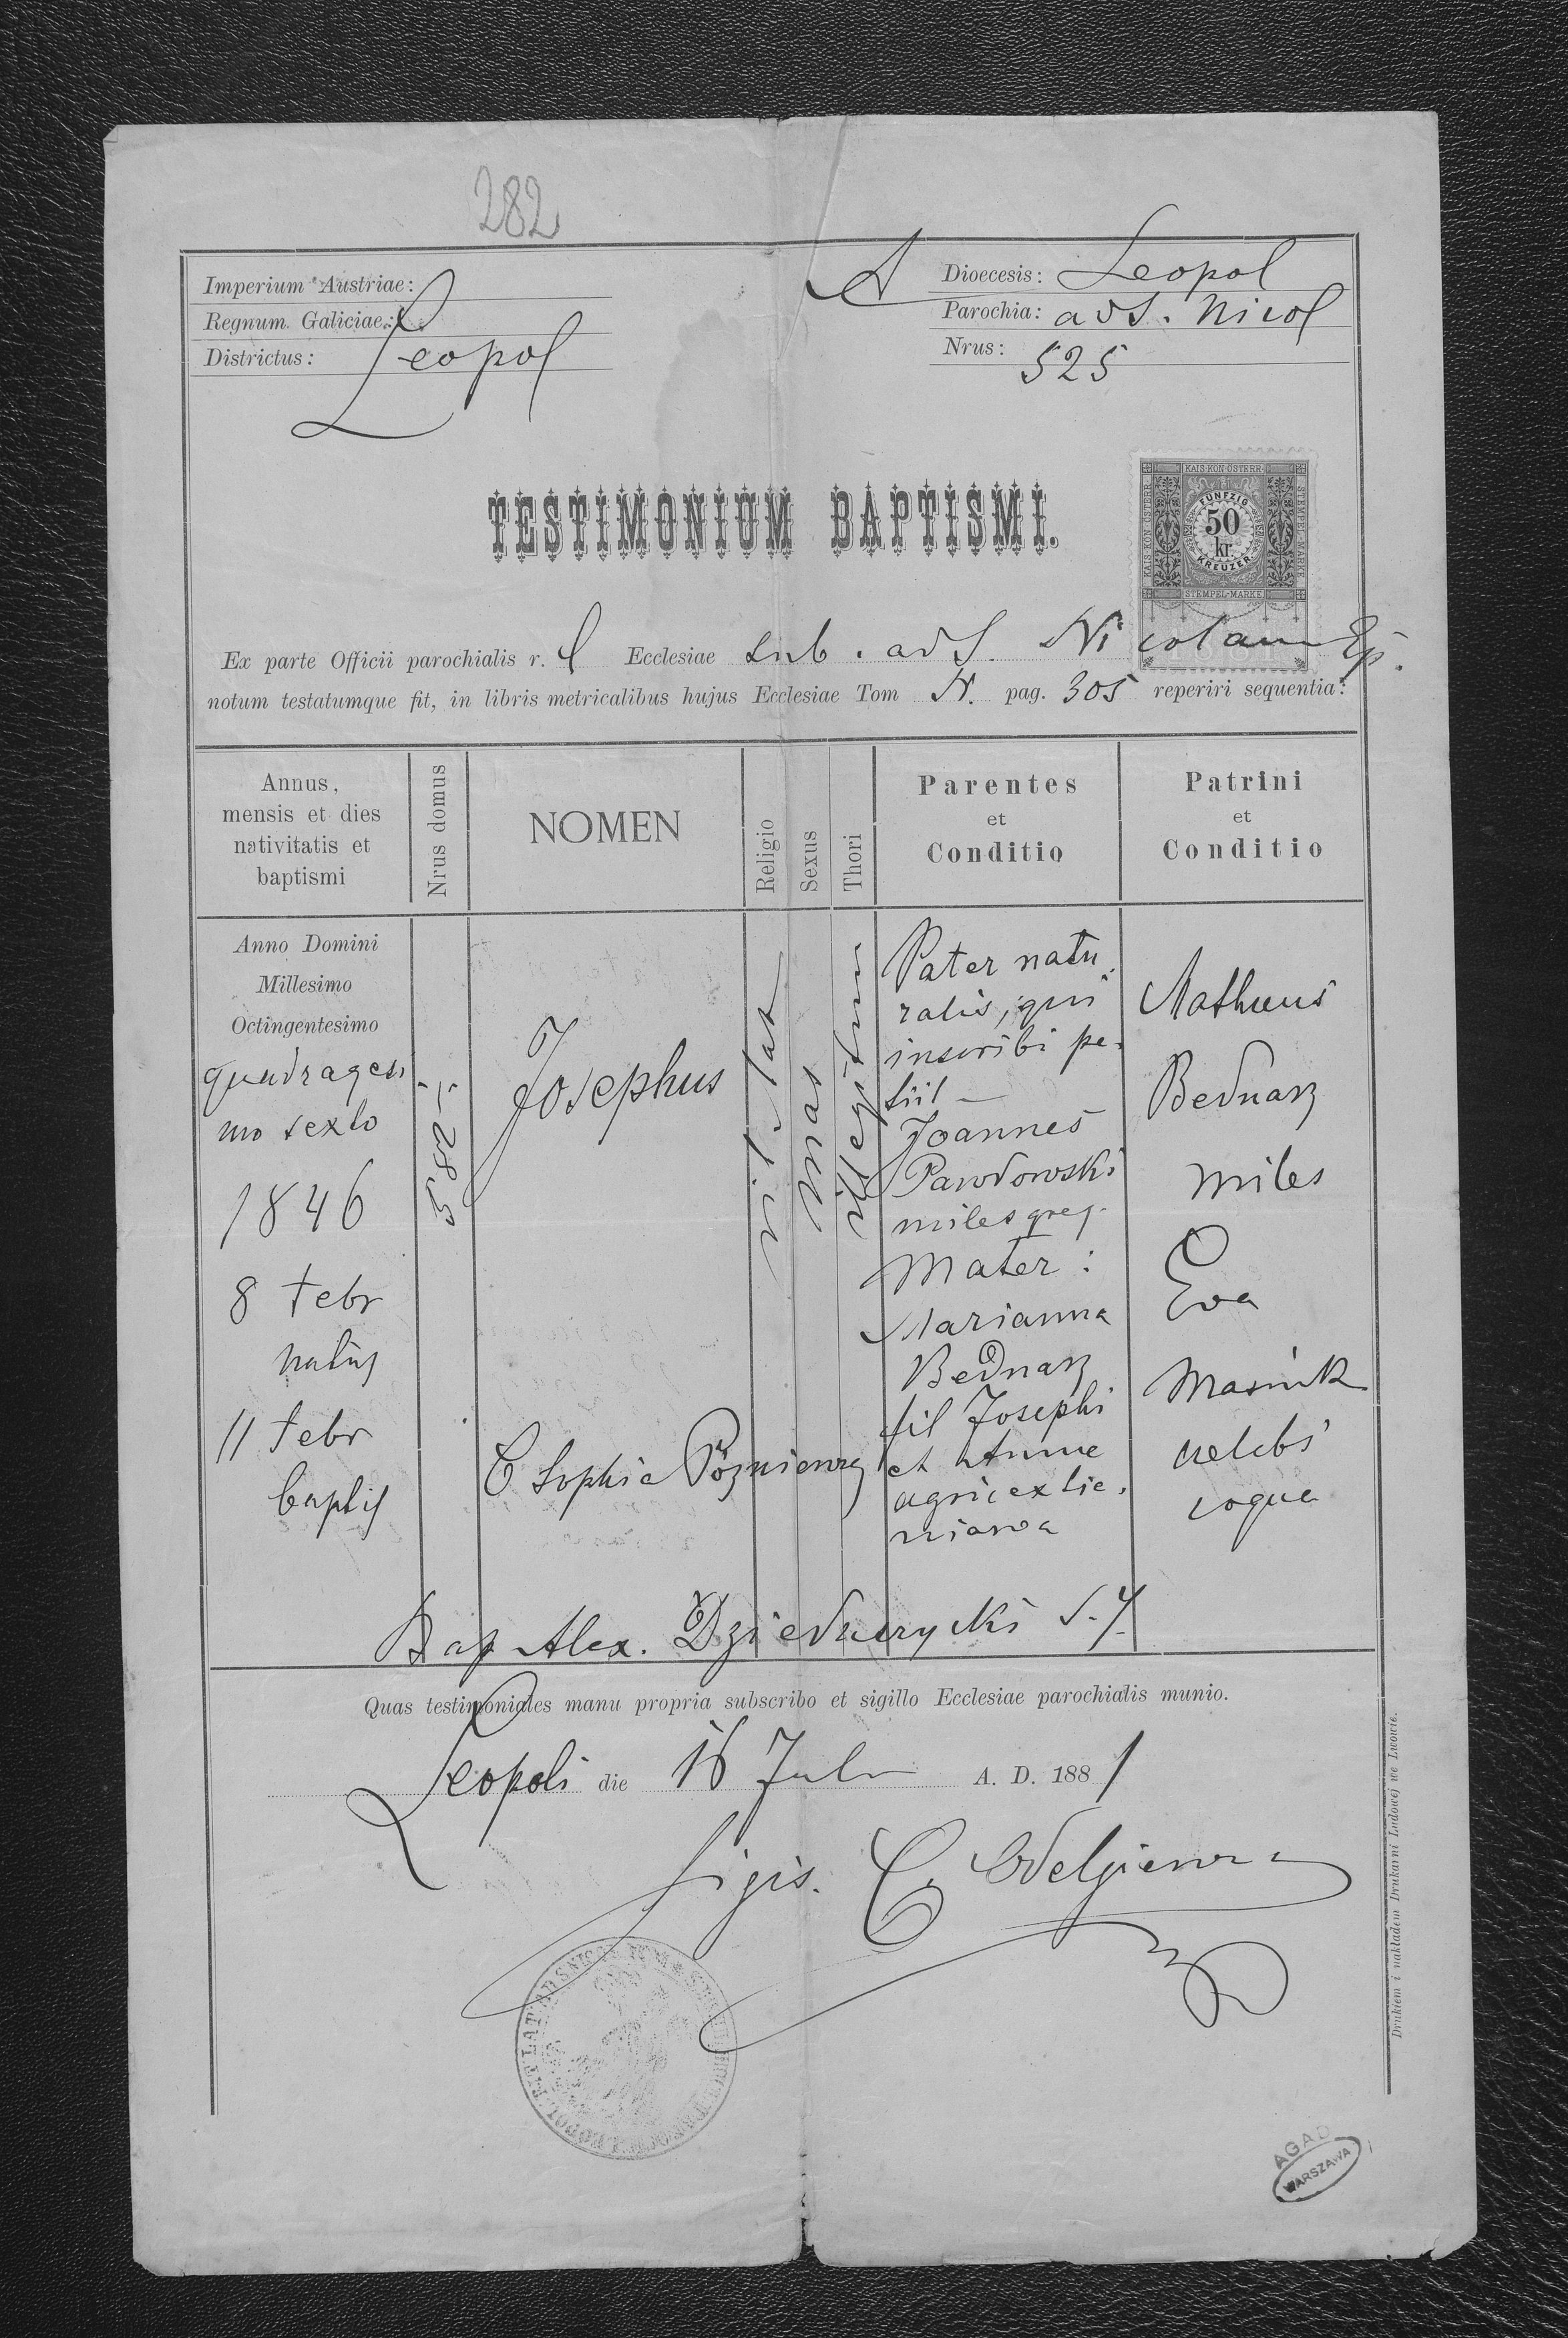 282
Imperium Austriae:
Regnum Galiciae:
Districtus: Leopol
Dioecesis: Leopol
Parochia: ad S. Nicol
Nrus: 525
TESTIMONIUM BAPTISMI.
KAIS·KÖN·ÖSTERR·
KAIS·KÖN·ÖSTERR·
STEMPEL-MARKE
FÜNFZIG
50
kr.
KREUZER
STEMPEL-MARKE
Ex parte Officii parochialis r. l Ecclesiae sub. ad S. Nicolaum Ep.
notum testatumque fit, in libris metricalibus hujus Ecclesiae Tom pag. 305 reperiri sequentia:
Annus,
mensis et dies
nativitatis et
baptismi
Nrus domus
NOMEN
Religio
Sexus
Thori
Parentes
et
Conditio
Patrini
et
Conditio
Anno Domini
Millesimo
Octingentesimo
quadragesi
mo sexto
1846
8 Febr
natus
11 Febr
baptis
Josephus
O Sophia
rit. lat
mas
illegitimi
Pater natu
ralis, qui
inscribi pe-
tiit —
Joannes
miles greg.
Mater:
Marianna
Bednarz
fil Josephi
et Annae
agric ex
Matheus
Bednarz
miles
Eva
caelebs
coqua
Bap Alex. Dzieduszycki S. J.
Quas testimoniales manu propria subscribo et sigillo Ecclesiae parochialis munio.
Leopoli die 16 A. D. 1881
Sigis.
Drukiem i nakładem Drukarni Ludowej we Lwowie.
AGAD
WARSZAWA